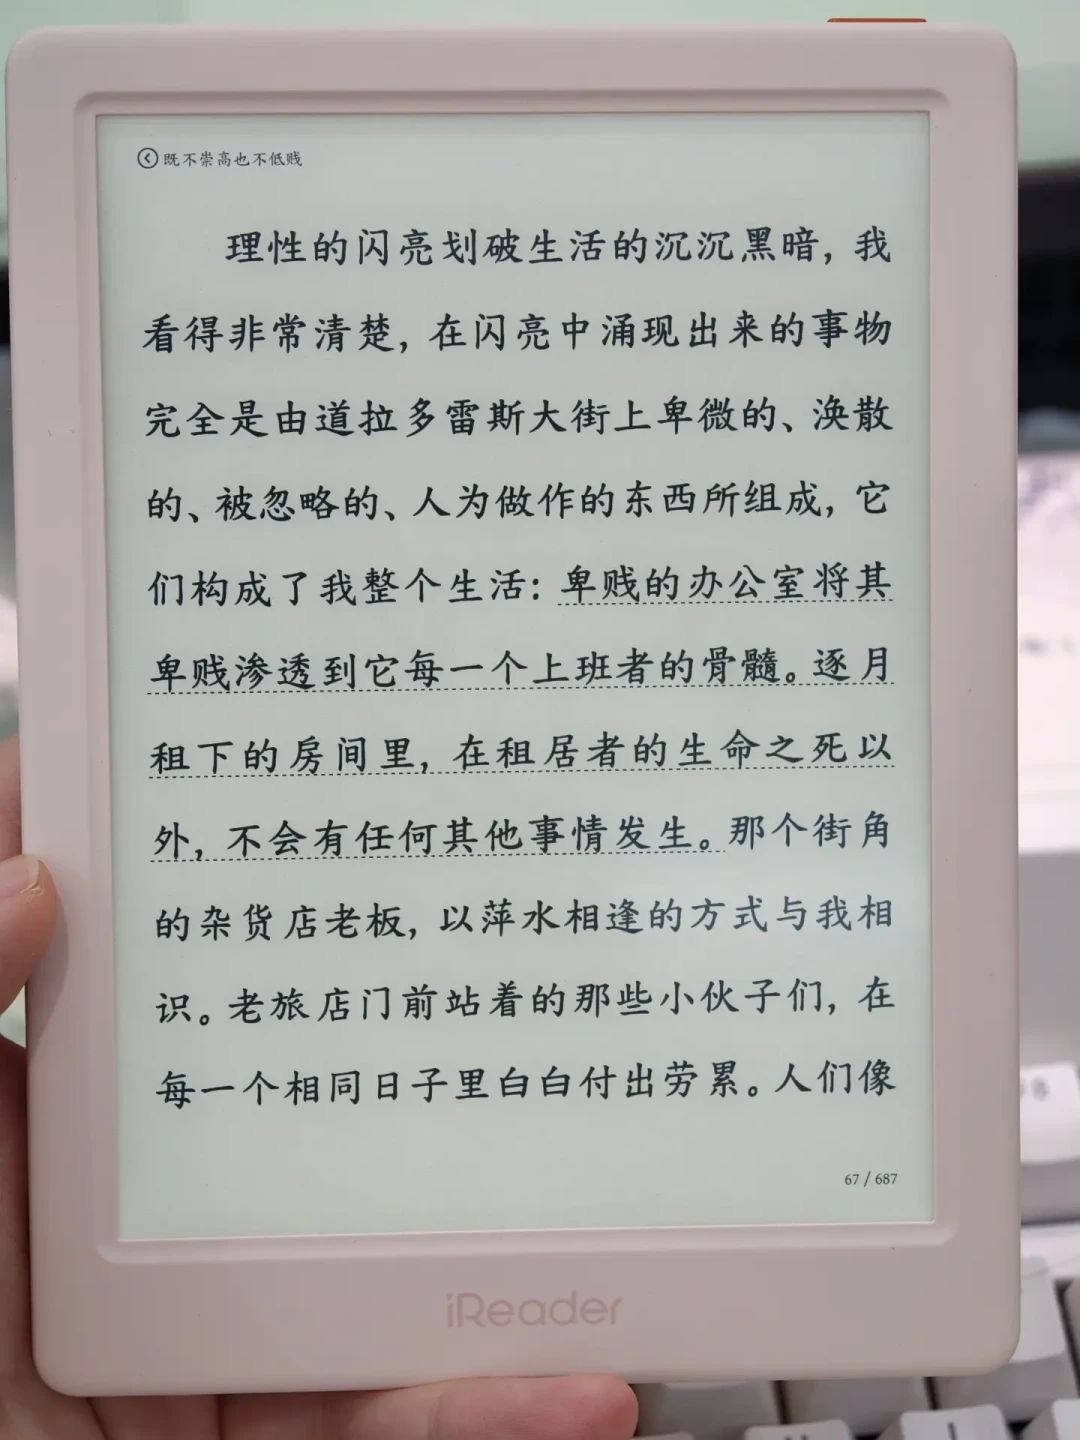 既不崇高也不低贱
理性的闪亮划破生活的沉沉黑暗，我
看得非常清楚，在闪亮中涌现出来的事物
完全是由道拉多雷斯大街上卑微的、涣散
的、被忽略的、人为做作的东西所组成，它
们构成了我整个生活：卑贱的办公室将其
卑贱渗透到它每一个上班者的骨髓。逐月
租下的房间里，在租居者的生命之死以
外，不会有任何其他事情发生。那个街角
的杂货店老板，以萍水相逢的方式与我相
识。老旅店门前站着的那些小伙子们，在
每一个相同日子里白白付出劳累。人们像
67 / 687
iReader